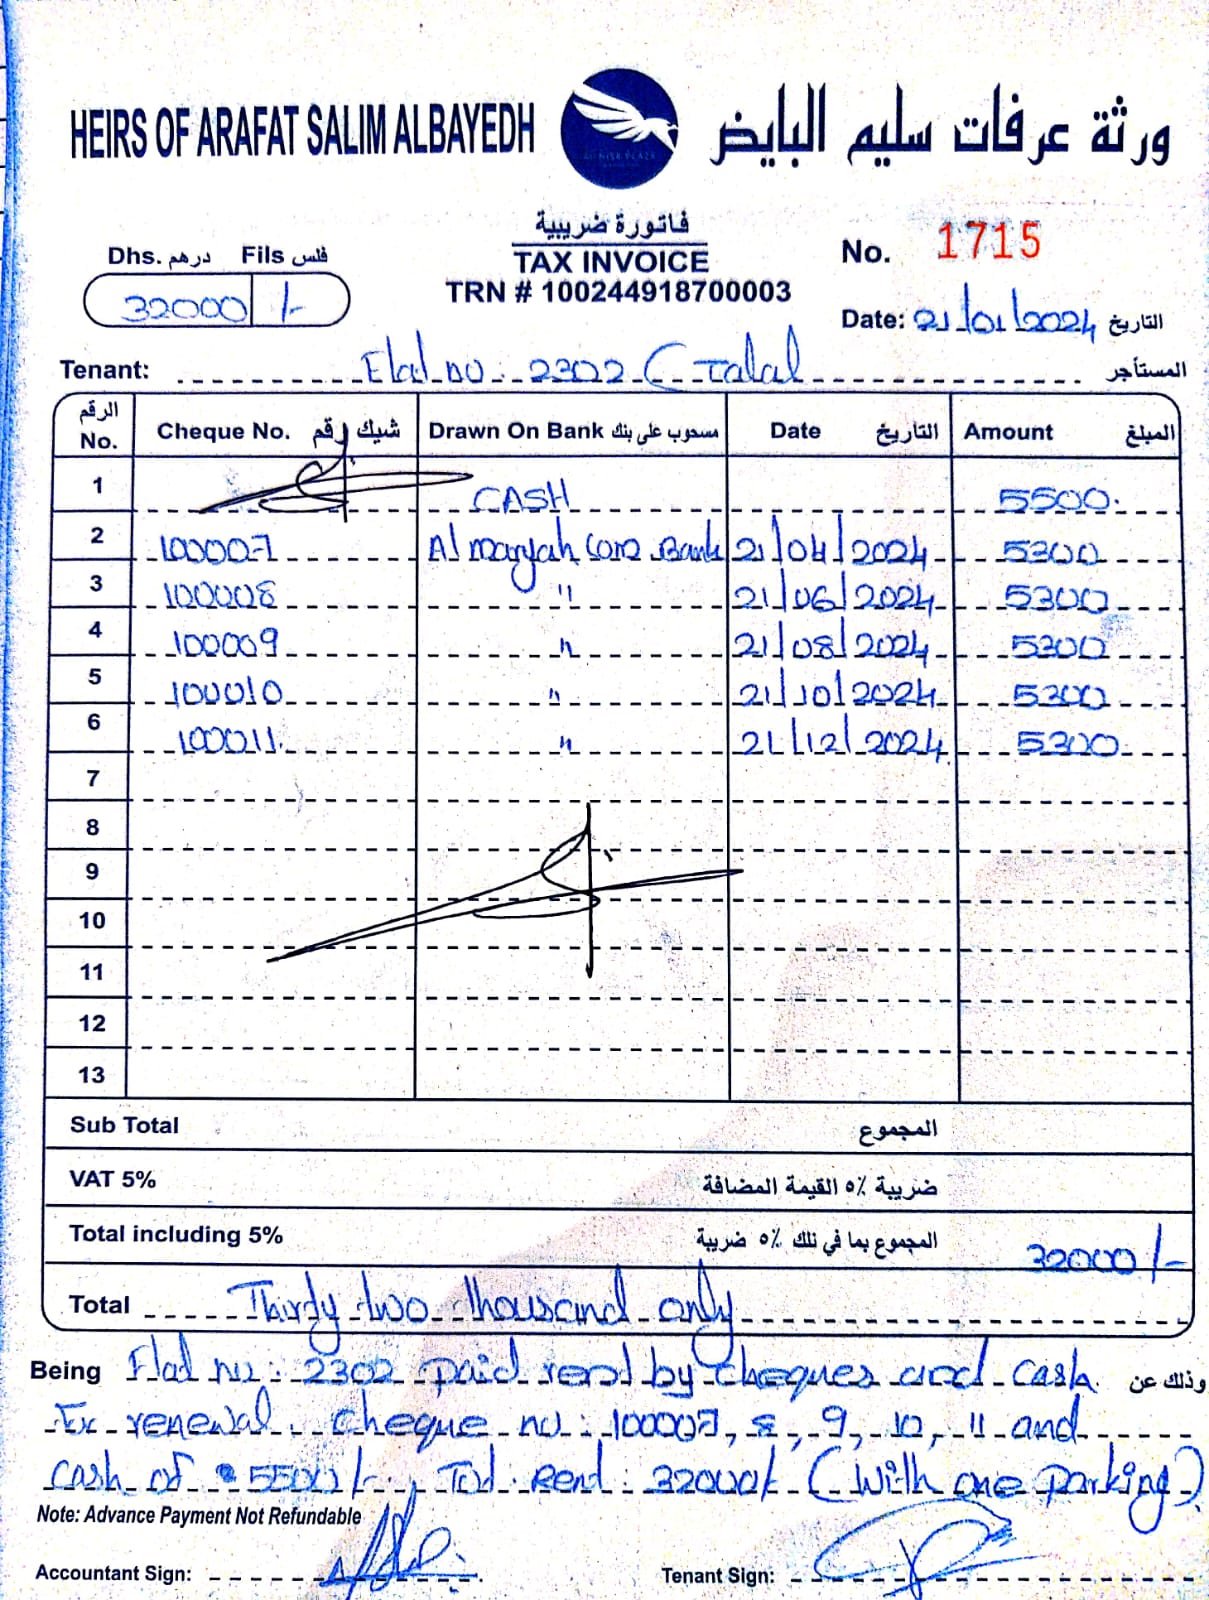 HEIRS OF ARAFAT SALIM ALBAYEDH ورثة عرفات سليم البايض
فاتورة ضريبية
TAX INVOICE
TRN # 100244918700003
Dhs. درهم Fils فلس
32000 /-
No. 1715
Date: 21/01/2024 التاريخ
Tenant: Flat no. 2302 ( Talal المستأجر
الرقم No. Cheque No. رقم شيك Drawn On Bank مسحوب على بنك Date التاريخ Amount المبلغ
1 CASH 5500.
2 100007 Al maryah Com Bank 21/04/2024 5300
3 100008 " 21/06/2024 5300
4 100009 " 21/08/2024 5300
5 100010 " 21/10/2024 5300
6 100011. " 21/12/2024 5300
7
8
9
10
11
12
13
Sub Total المجموع
VAT 5% ضريبة ٥٪ القيمة المضافة
Total including 5% المجموع بما في تلك ٥٪ ضريبة 32000/-
Total Thirty two thousand only
Being Flat no: 2302 paid rent by cheques and cash. وذلك عن
renewal. cheque no: 100007, 8, 9, 10, 11 and
cash of 5500/-, Tot. Rent: 32000/- (With one parking)
Note: Advance Payment Not Refundable
Accountant Sign: Tenant Sign: